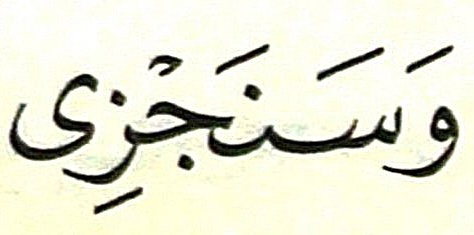 وَسَنَجْزِى